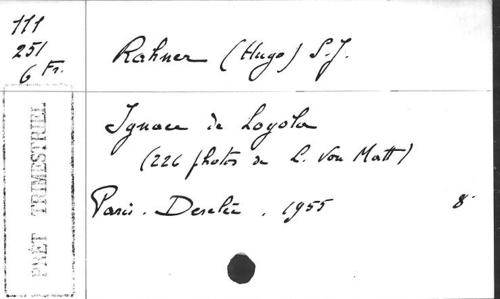 111
251
6 Fr.
Rahner (Hugo) S.J.
Ignace de Loyola
(226 photos de L. Von Matt)
Paris. Desclée. 1955 8°
PRÊT TRIMESTRIEL